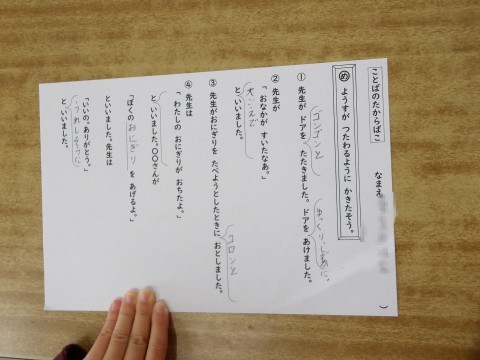 ことばのたからばこ
なまえ
め ようすが つたわるように かきたそう。
① 先生が ドアを たたきました。ドアを あけました。
ゴンゴンと
② 先生が
「おなかが すいたなあ。」
と いいました。
大ごえで
③ 先生がおにぎりを たべようとしたときに おとしました。
コロンと
④ 先生は
「わたしの おにぎりが おちたよ。」
と いいました。〇〇さんが
「ぼくの おにぎり を あげるよ。」
といいました。先生は
「いいの。ありがとう。」
と いいました。
うれしそうに